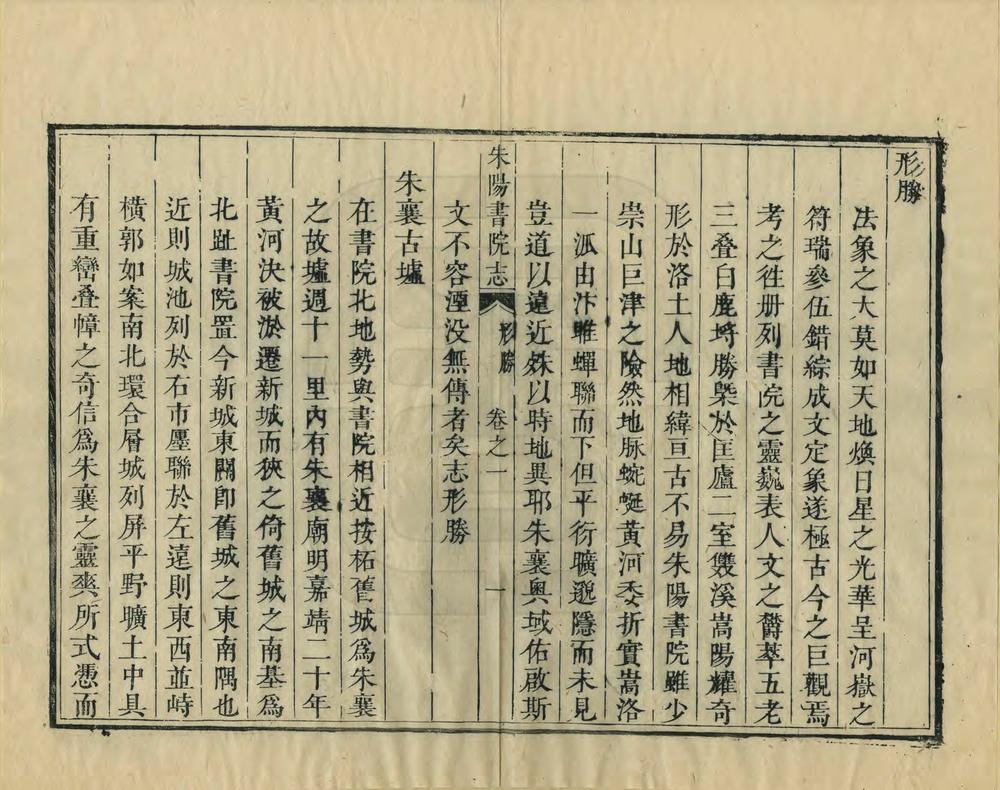 形勝
法象之大莫如天地煥日星之光華呈河嶽之
符瑞參伍錯綜成文定象遂極古今之巨觀焉
考之徃册列書院之靈巍表人文之欝萃五老
三叠白鹿塒勝槩於匡廬二室雙溪嵩陽耀奇
形於洛土人地相緯亘古不易朱陽書院雖少
崇山巨津之險然地脉蜿蜒黃河委折實嵩洛
一派由汴雎蟬聯而下但平衍曠邈隱而未見
豈道以遠近殊以時地異耶朱襄奥域佑啟斯
文不容湮没無傳者矣志形勝
朱陽書院志
形勝
卷之一
一
朱襄古墟
在書院北地勢與書院相近按柘舊城爲朱襄
之故墟週十一里內有朱襄廟明嘉靖二十年
黃河決被淤遷新城而狹之倚舊城之南基爲
北趾書院置今新城東關卽舊城之東南隅也
近則城池列於右市廛聯於左遠則東西並峙
橫郭如案南北環合層城列屏平野曠土中具
有重巒叠幛之奇信爲朱襄之靈爽所式憑而